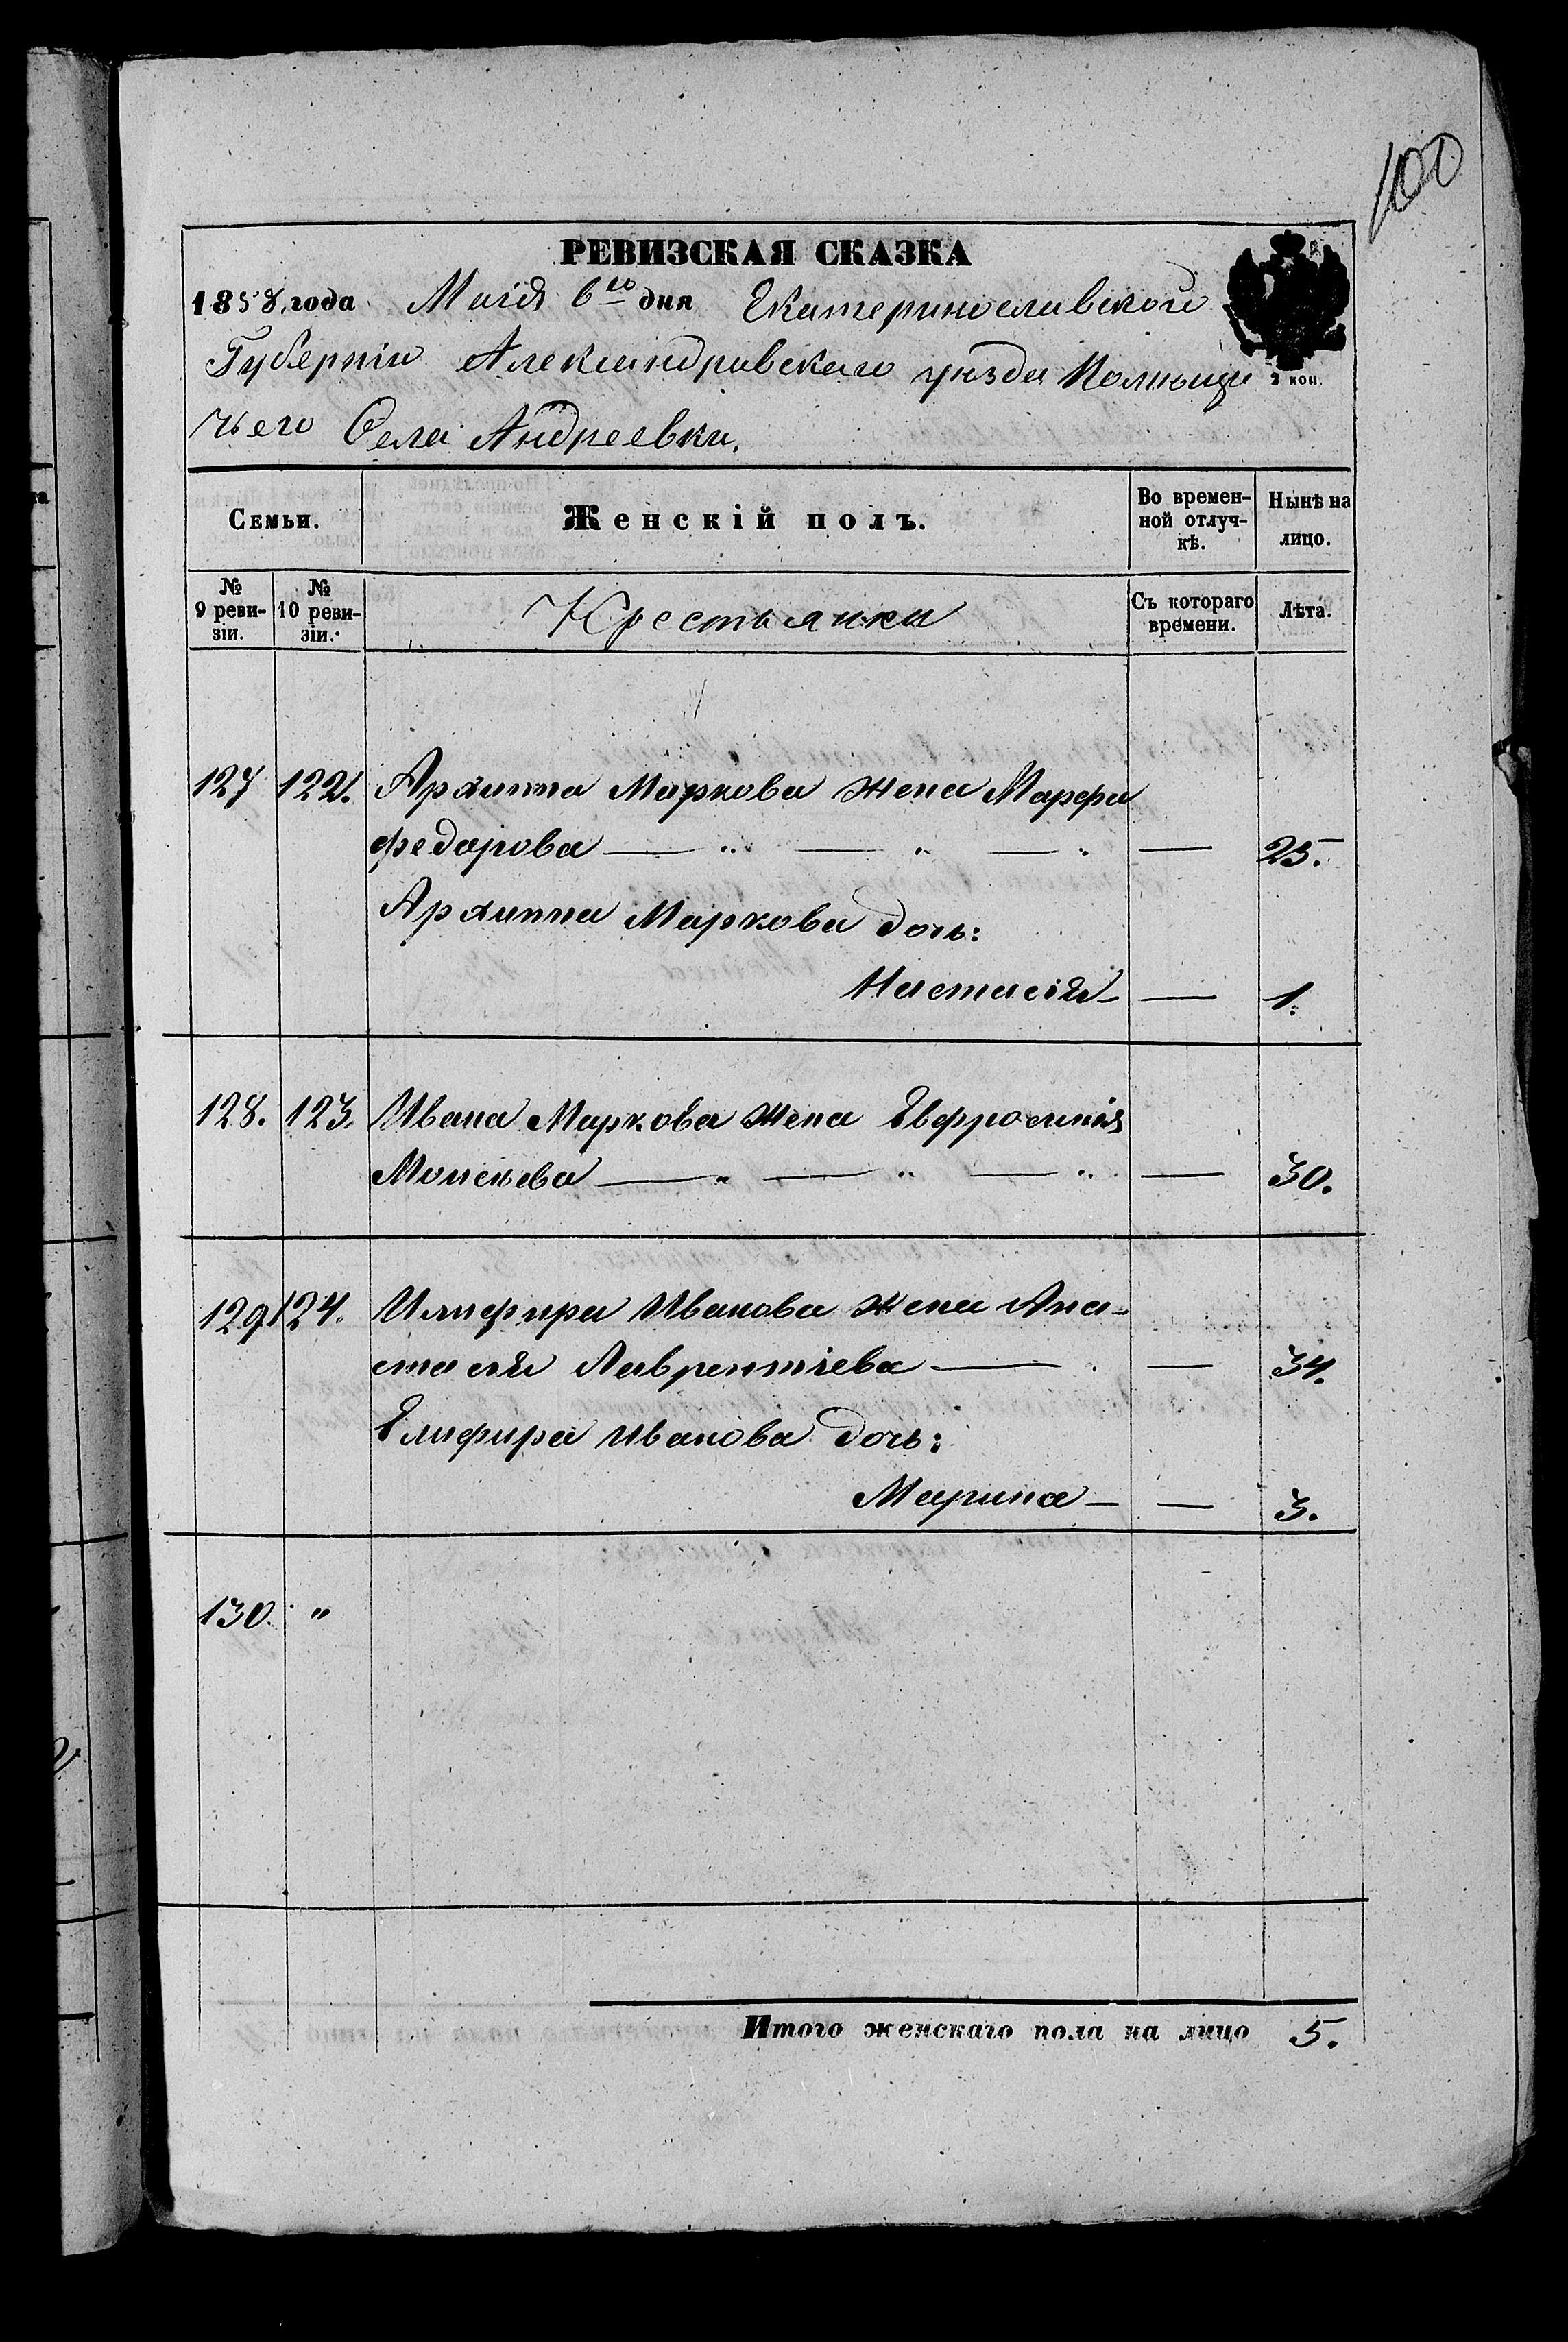 100
РЕВИЗСКАЯ СКАЗКА
1858 года Маія 6го дня Екатеринославской
Губерніи Александровскаго уѣзда Помѣщи
чьего Села Андреевки.
2 коп.
Семьи.
Женскій полъ.
Во времен-
ной отлуч-
кѣ.
Нынѣ на
лицо.
№
9 реви-
зіи.
№
10 реви-
зіи.
Крестьянки
Съ котораго
времени.
Лѣта.
127 122. Архиппа Маркова жена Марфа
Федорова — „ — „ — „ — 25.
Архиппа Маркова дочь:
Настасія — — 1.
128. 123. Ивана Маркова жена Евфросинія
Моисѣева — „ — „ — „ — 30.
129 124. Илифира Иванова жена Ана-
стасія Лаврентіева — — 34.
Елифира Иванова дочь:
Марина — — 3.
130. „
Итого женскаго пола на лицо 5.